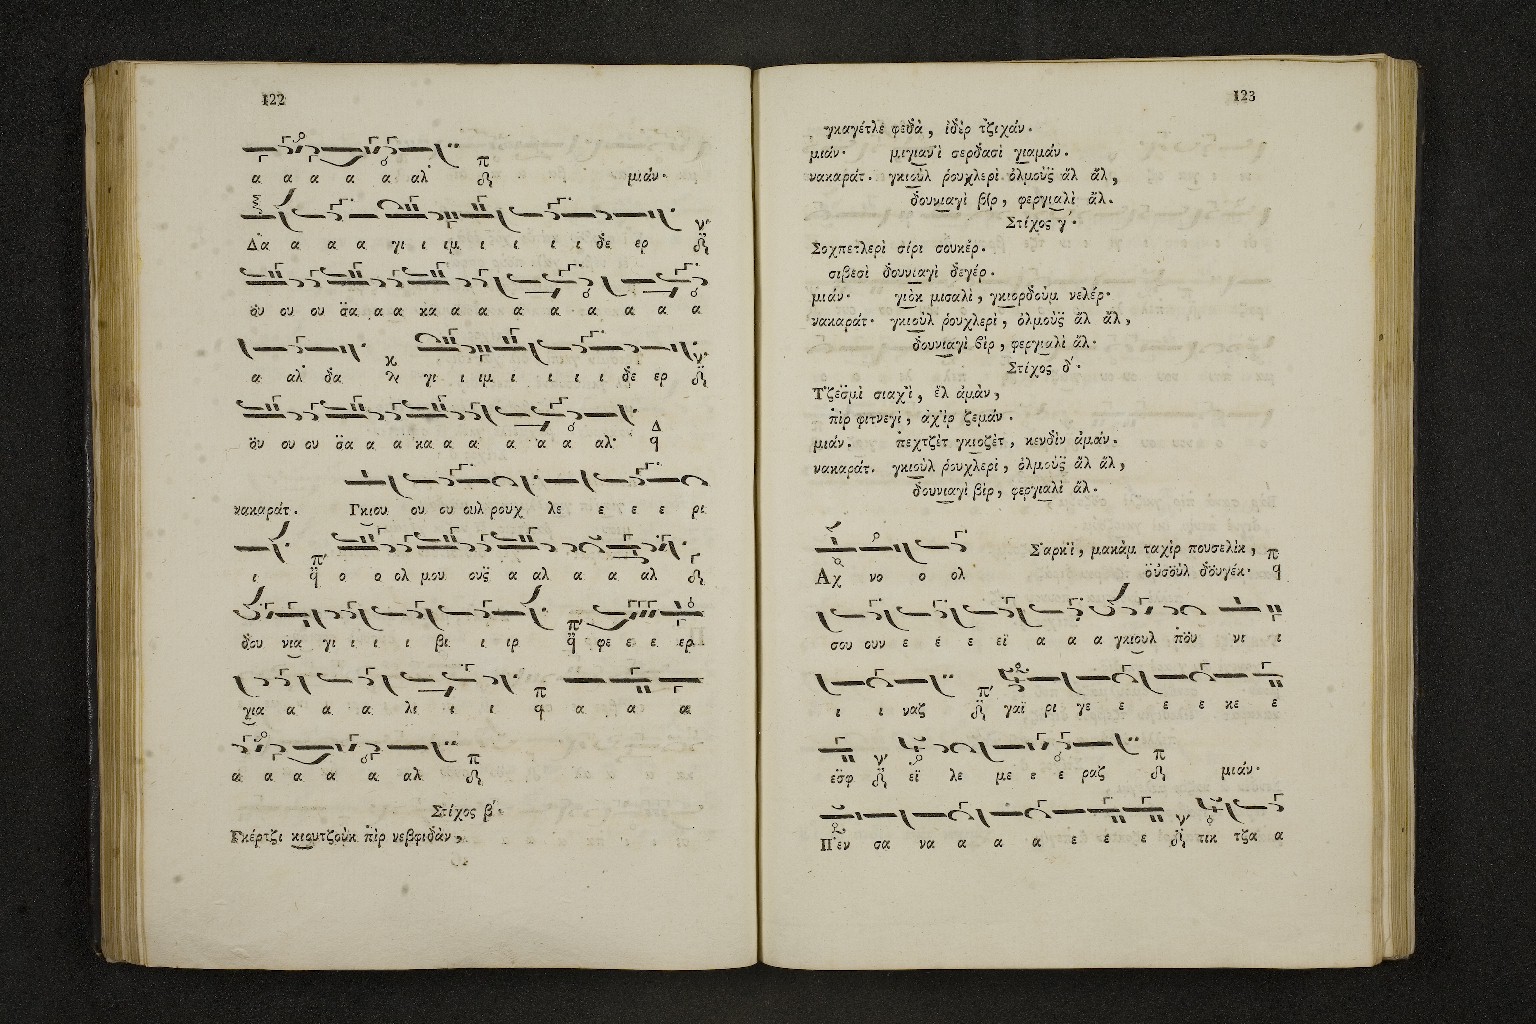 122
α α α α α αλ μιάν.
Δα α α α γι ι ιμ ι ι ι ι ι δε ερ
ὄυ ου ου σ̈α α α κα α α α α α α α α
α αλ δα γι ι ιμ ι ι ι ι δε ερ
ὄυ ου ου σ̈α α α κα α α α α α αλ
νακαράτ. Γκιου ου ου ουλ ρουχ λε ε ε ε ε ρι
ι ο ο ολ μου ουσ̈ α αλ α α αλ
δου νια γι ι ι ι βι ι ιρ φε ε ε ερ
για α α α λι ι ι α α α
α α α α α αλ
Στίχος β΄.
Γκέρτζι κιουτζοὺκ πὶρ νεβφιδὰν,
123
γκαγέτλε φεδὰ, ἰδὲρ τζιχάν.
μιάν. μιγιανὶ σερδασὶ γιαμάν.
νακαράτ. γκιοὺλ ῥουχλερὶ ὀλμοὺσ̈ ἂλ ἂλ,
δουνιαγὶ βὶρ, φεργιαλὶ ἄλ.
Στίχος γ΄.
Σοχπετλερὶ σίρι σουκέρ.
σιβεσὶ δουνιαγὶ δεγέρ.
μιάν. γιὸκ μισαλὶ, γκιορδοὺμ νελέρ.
νακαράτ. γκιοὺλ ῥουχλερὶ, ὀλμοὺσ̈ ἂλ ἂλ,
δουνιαγὶ βὶρ, φεργιαλὶ ἄλ.
Στίχος δ΄.
Τζεσ̈μὶ σιαχὶ, ἐλ ἀμὰν,
πὶρ φιτνεγὶ, ἀχὶρ ζεμάν.
μιάν. πεχτζὲτ γκιοζὲτ, κενδὶν ἀμάν.
νακαράτ. γκιοὺλ ῥουχλερὶ, ὀλμοὺσ̈ ἂλ ἂλ,
δουνιαγὶ βὶρ, φεργιαλὶ ἄλ.
Σ̈αρκὶ, μακὰμ ταχὶρ πουσελὶκ,
Αχ νο ο ολ ὀὐσοὺλ δὀυγέκ.
σου ουν ε ε ε εϊ α α α γκιουλ πὄυ νι ι
ι ι ναζ γαϊ ρι γε ε ε ε κε ε
εσ̈φ εϊ λε με ε ε ραζ μιάν.
Πεν σα να α α α ε ε ε τικ τζα α